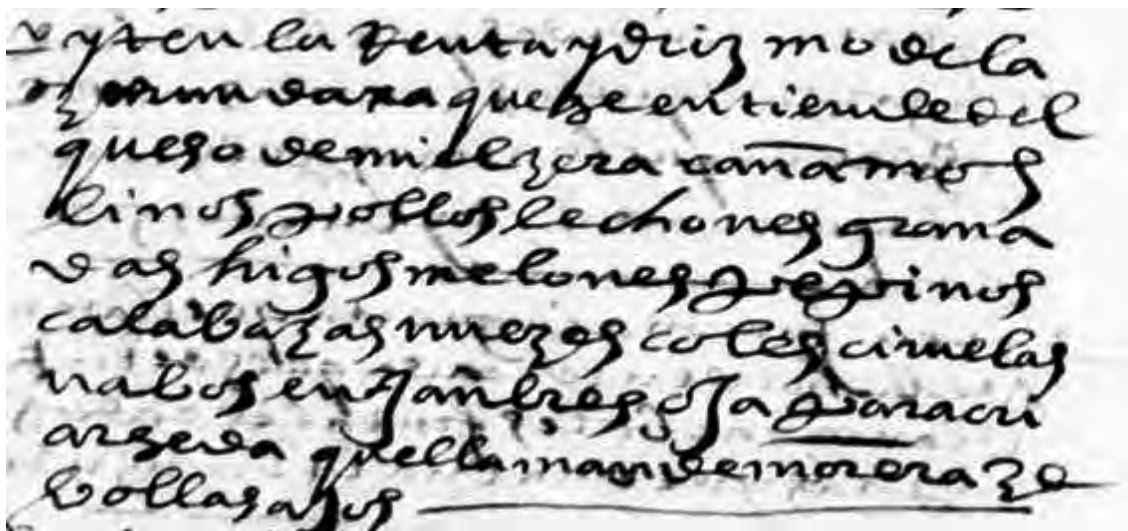 yten la Renta y diezmo de la
que se entiende del
queso de miel zera cañamos
linos pollos lechones grana
das higos melones pepinos
calabazas nuezes coles ciruelas
nabos enxanbres oja para cri
ar seda que llaman de morera ze
bollas ajos